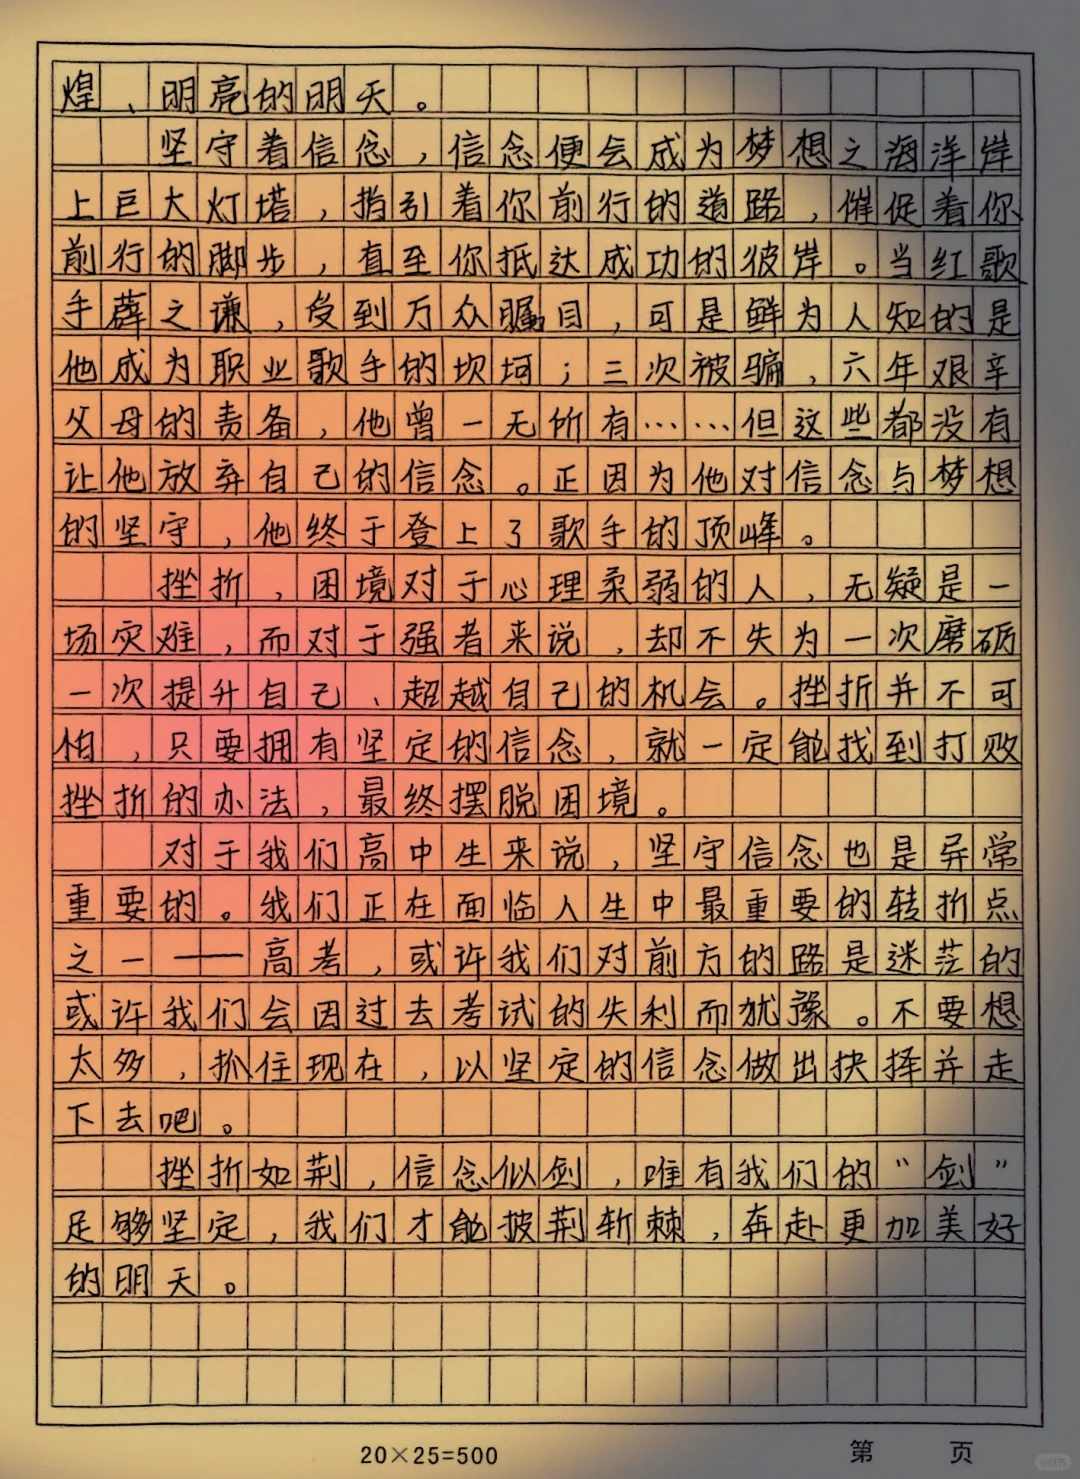 煌、明亮的明天。
坚守着信念，信念便会成为梦想之海洋岸
上巨大灯塔，指引着你前行的道路，催促着你
前行的脚步，直至你抵达成功的彼岸。当红歌
手薛之谦，受到万众瞩目，可是鲜为人知的是
他成为职业歌手的坎坷；三次被骗，六年艰辛
父母的责备，他曾一无所有……但这些都没有
让他放弃自己的信念。正因为他对信念与梦想
的坚守，他终于登上了歌手的顶峰。
挫折，困境对于心理柔弱的人，无疑是一
场灾难，而对于强者来说，却不失为一次磨砺
一次提升自己、超越自己的机会。挫折并不可
怕，只要拥有坚定的信念，就一定能找到打败
挫折的办法，最终摆脱困境。
对于我们高中生来说，坚守信念也是异常
重要的。我们正在面临人生中最重要的转折点
之一——高考，或许我们对前方的路是迷茫的
或许我们会因过去考试的失利而犹豫。不要想
太多，抓住现在，以坚定的信念做出抉择并走
下去吧。
挫折如荆，信念似剑，唯有我们的“剑”
足够坚定，我们才能披荆斩棘，奔赴更加美好
的明天。
20×25=500 第 页